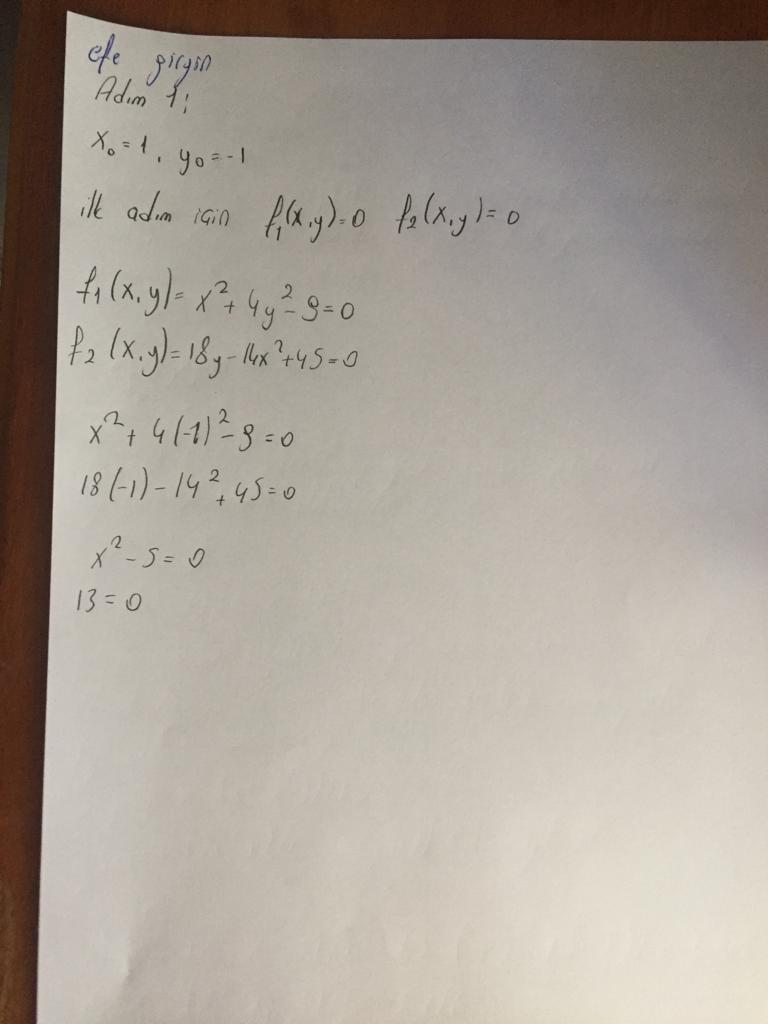 efe girgin
Adım 1;
x₀ = 1, y₀ = -1
ilk adım için f₁(x,y)=0 f₂(x,y)=0
f₁(x,y)= x²+4y²-9=0
f₂(x,y)=18y-14x²+45=0
x²+4(-1)²-9=0
18(-1)-14²+45=0
x²-5=0
13=0